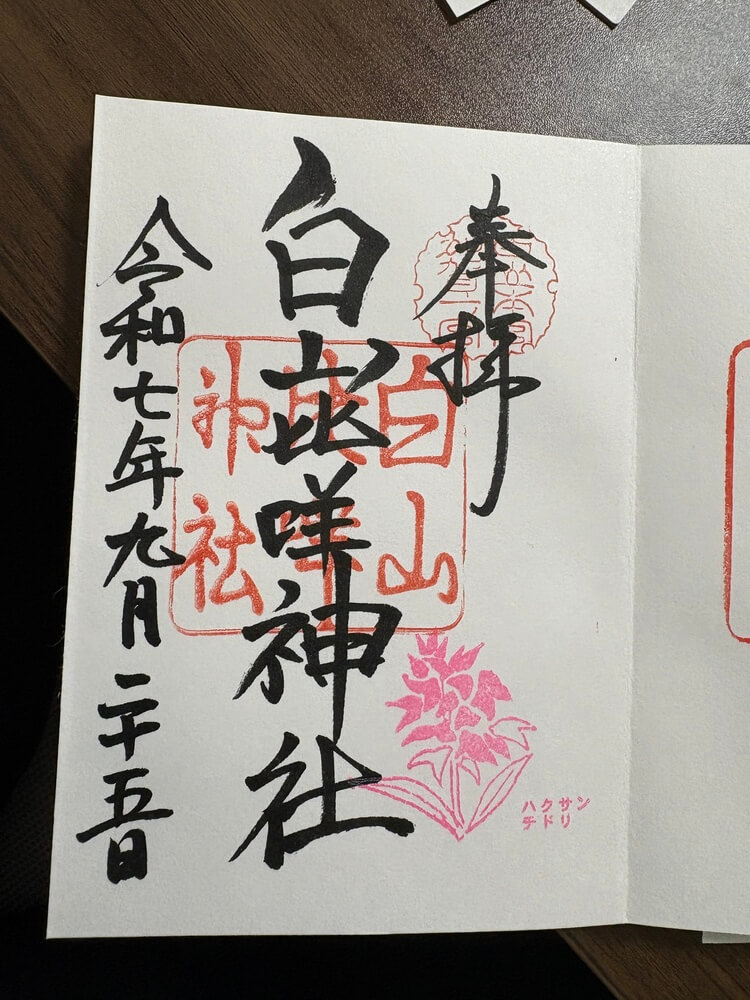 奉拝
白山比咩神社
白山
比咩
神社
令和七年九月二十五日
ハクサン
チドリ